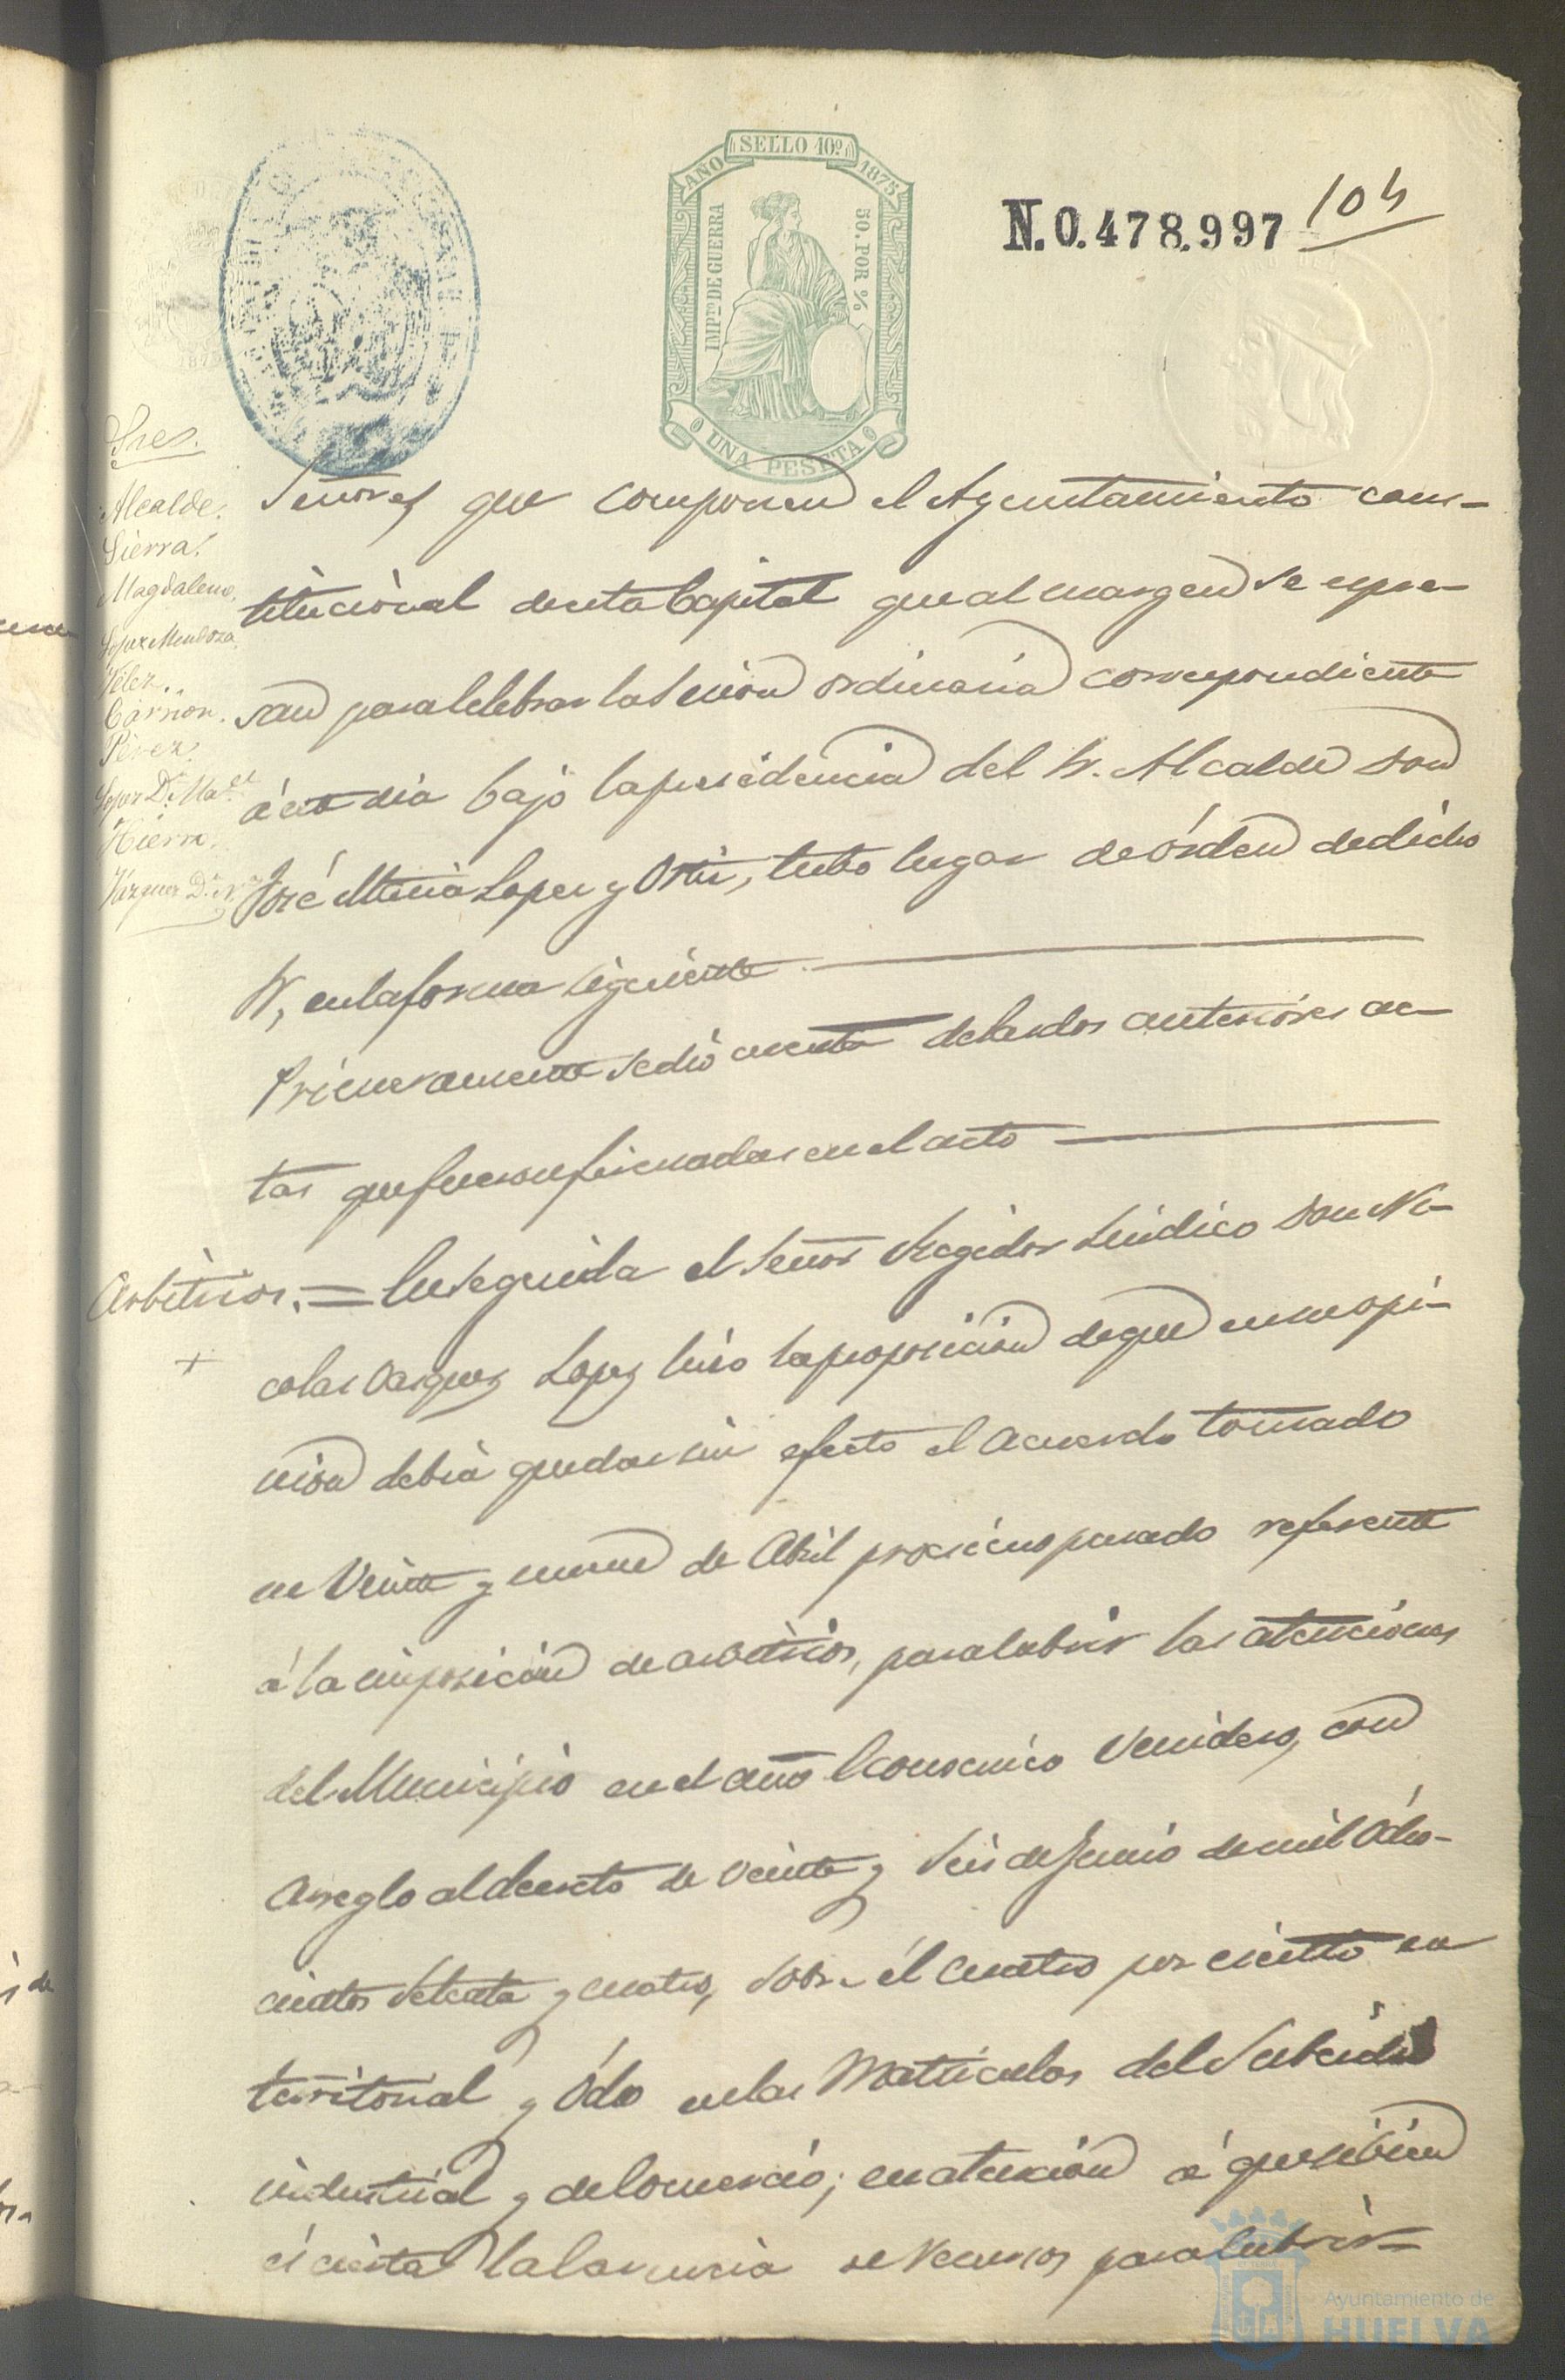 SELLO 10º
AÑO 1875
IMPTO DE GUERRA
50. POR %
UNA PESETA
N. 0.478.997
104
Sres.
Alcalde.
Sierra.
Magdaleno.
Lopez Mendoza.
Velez.
Carrion.
Perez.
Lopez D. Man.el
Hierro.
Vazquez D. N.
Señores que componen el Ayuntamiento cons-
titucional de esta Capital que al margen se espre-
san para celebrar la Sesion ordinaria correspondiente
á este dia bajo la presidencia del Sr. Alcalde Don
José Maria Lopez y Ortiz, tubo lugar de órden de dicho
Sr, en la forma siguiente
Primeramente se dió cuenta de las dos anteriores ac-
tas que fueron firmadas en el acto
Arbitrios. = En seguida el Señor Regidor Sindico Don Ni-
colas Vazquez Lopez hizo la proposicion de que en su opi-
nion debia quedar sin efecto el acuerdo tomado
en Veinte y nueve de Abril proximo pasado referente
á la imposicion de arbitrios, para cubrir las atenciones
del Municipio en el año Economico Venidero, con
arreglo al decreto de veinte y seis de Junio de mil Ocho-
cientos setenta y cuatro, sobre el cuatro por ciento en
territorial y Ocho en las Matriculas del Subsidio
industrial y de Comercio; en atencion á que si bien
es cierta la carencia de recursos para cubrir
Ayuntamiento de
HUELVA